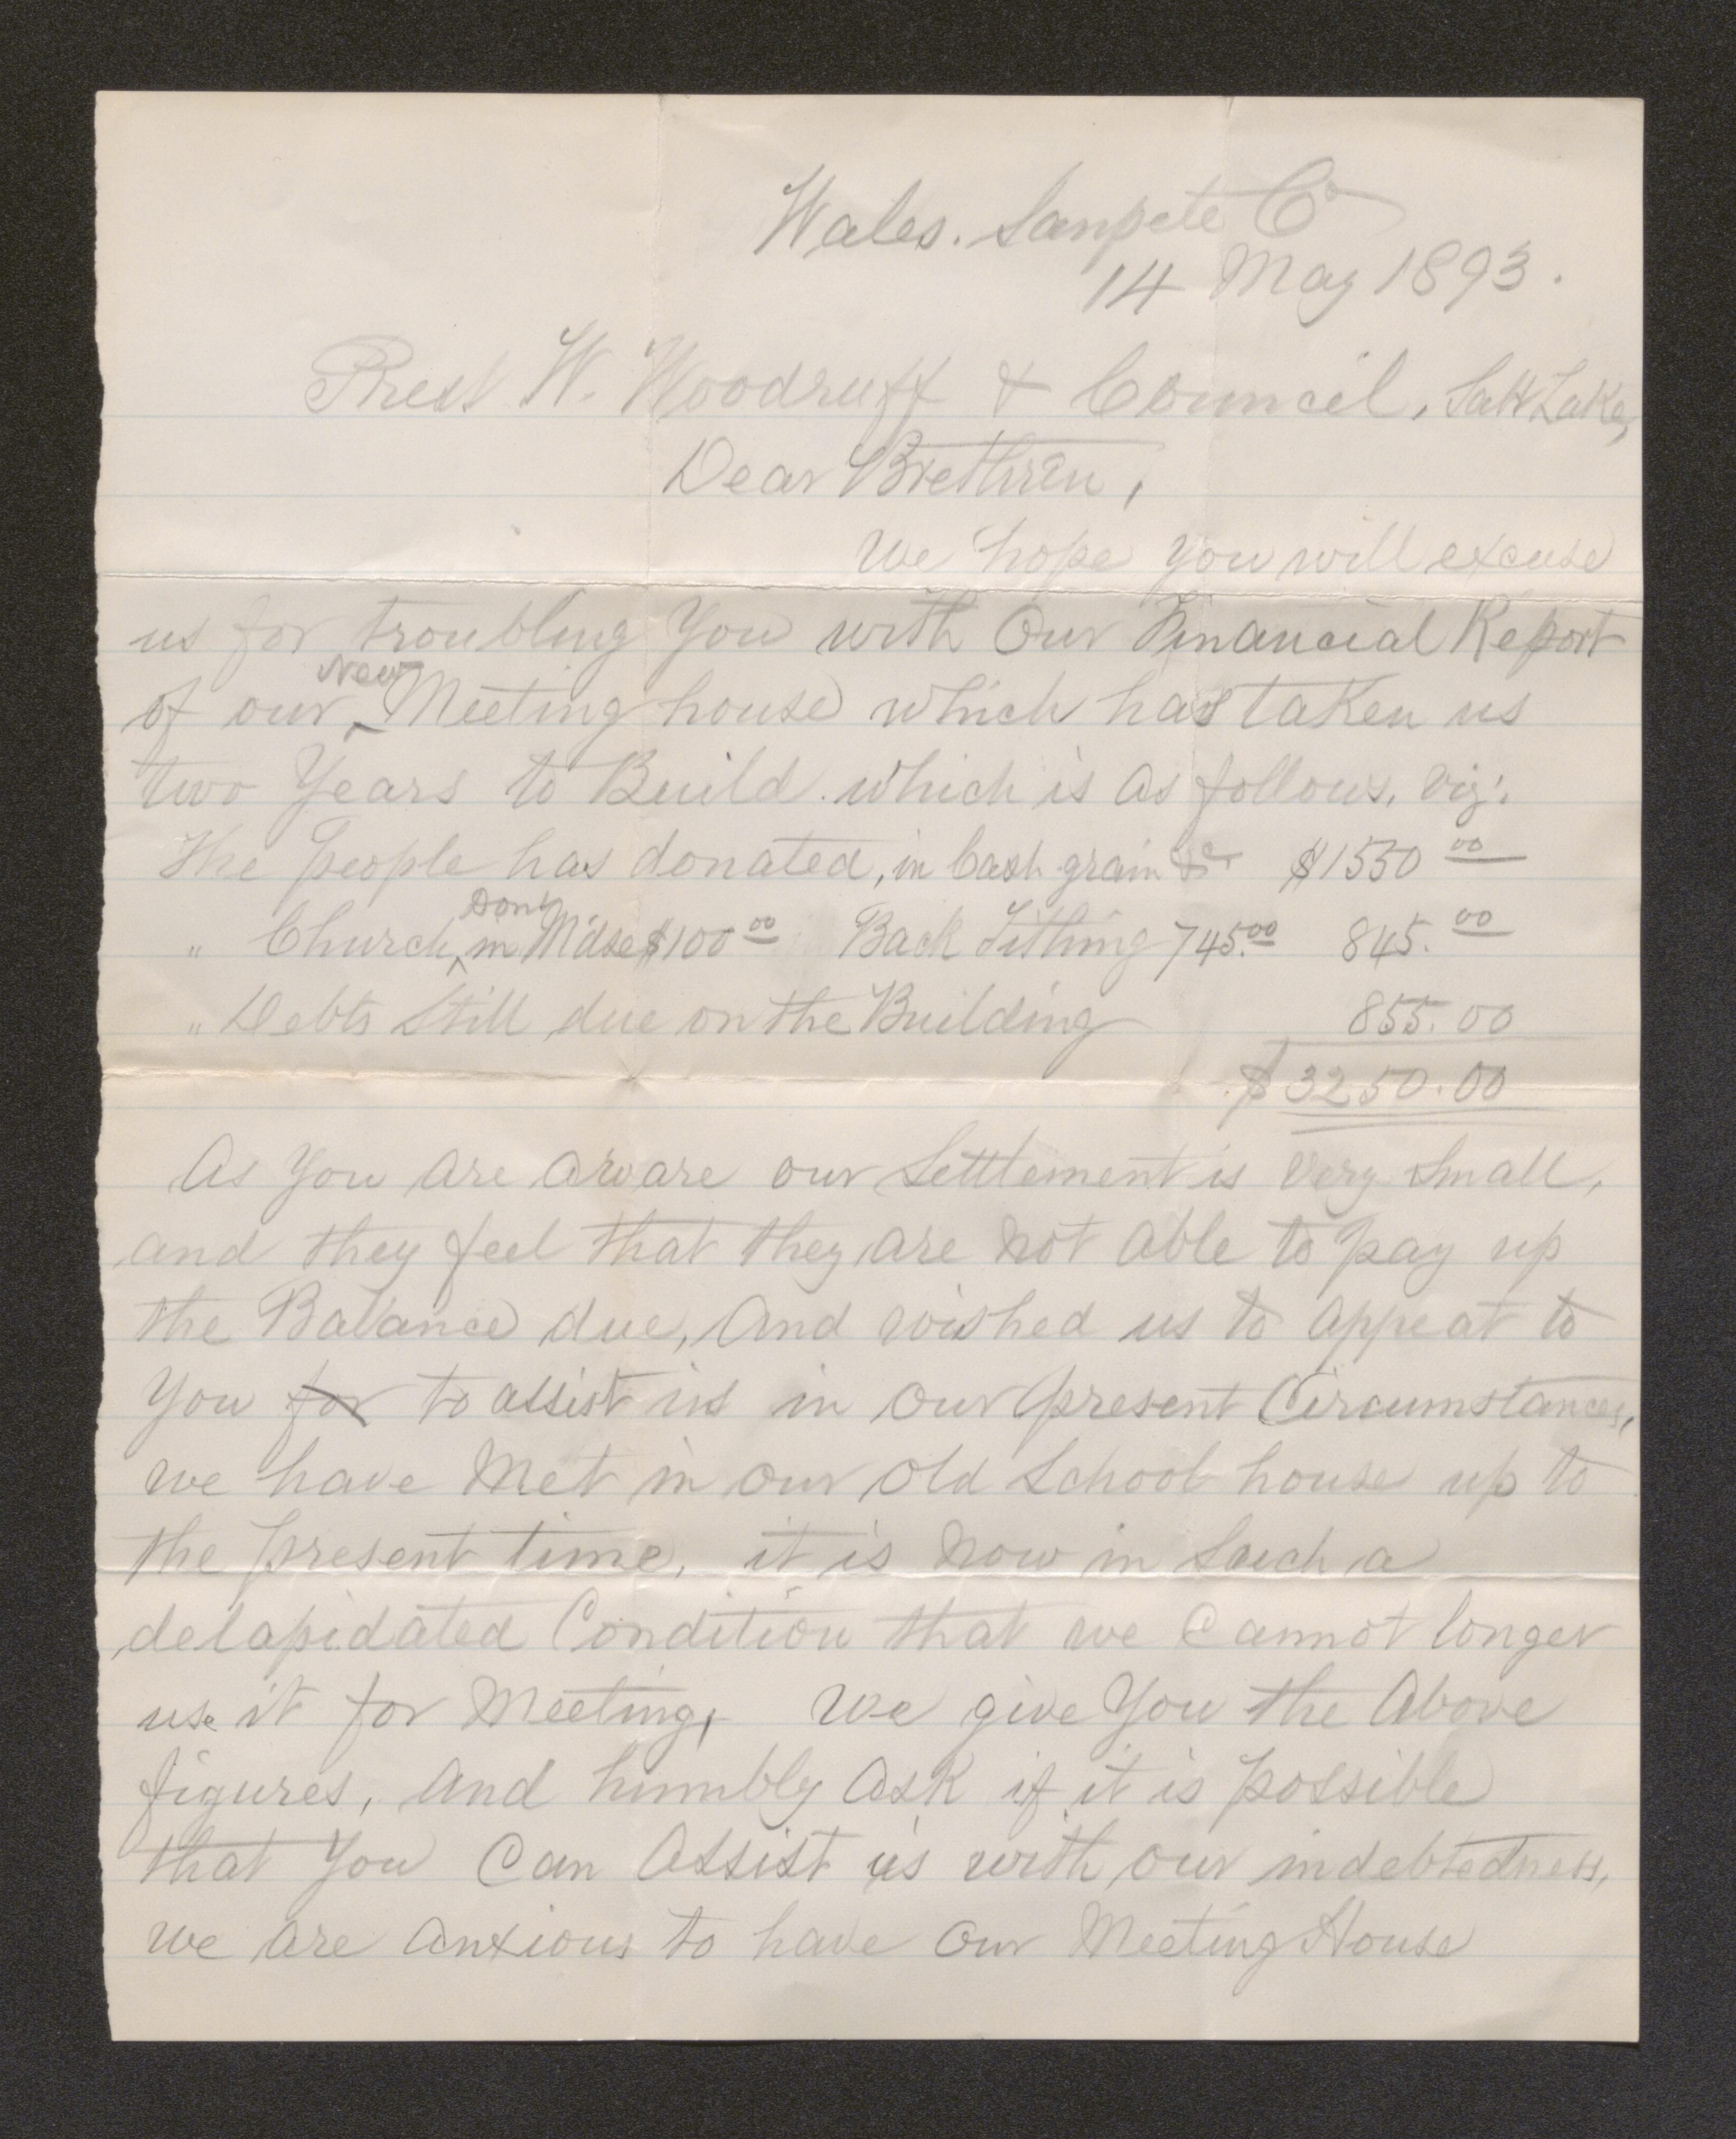 Wales. Sanpete Co
14 May 1893.
Prest W. Woodruff & Council, Salt Lake,
Dear Brethren,
We hope you will excuse
us for troubling You with Our Financial Report
of our New Meeting house which has taken us
two Years to Build. which is as follows, viz:
The people has donated, in Cash grain &c $1550 00
" Church, Dont in Mdse $100 00 Back Tithing 745.00 845. 00
" Debts Still due on the Building 855.00
$3250.00
As You are aware our Settlement is very Small,
and they feel that they are not able to pay up
the Balance due, and wished us to appeat to
You for to assist us in our present Circumstances,
we have Met in our old School house up to
the present time, it is now in Such a
delapidated Condition that we Cannot longer
use it for Meeting, We give You the Above
figures, and humbly ask if it is possible
that You Can Assist us with our indebtedness,
we are anxious to have our Meeting House